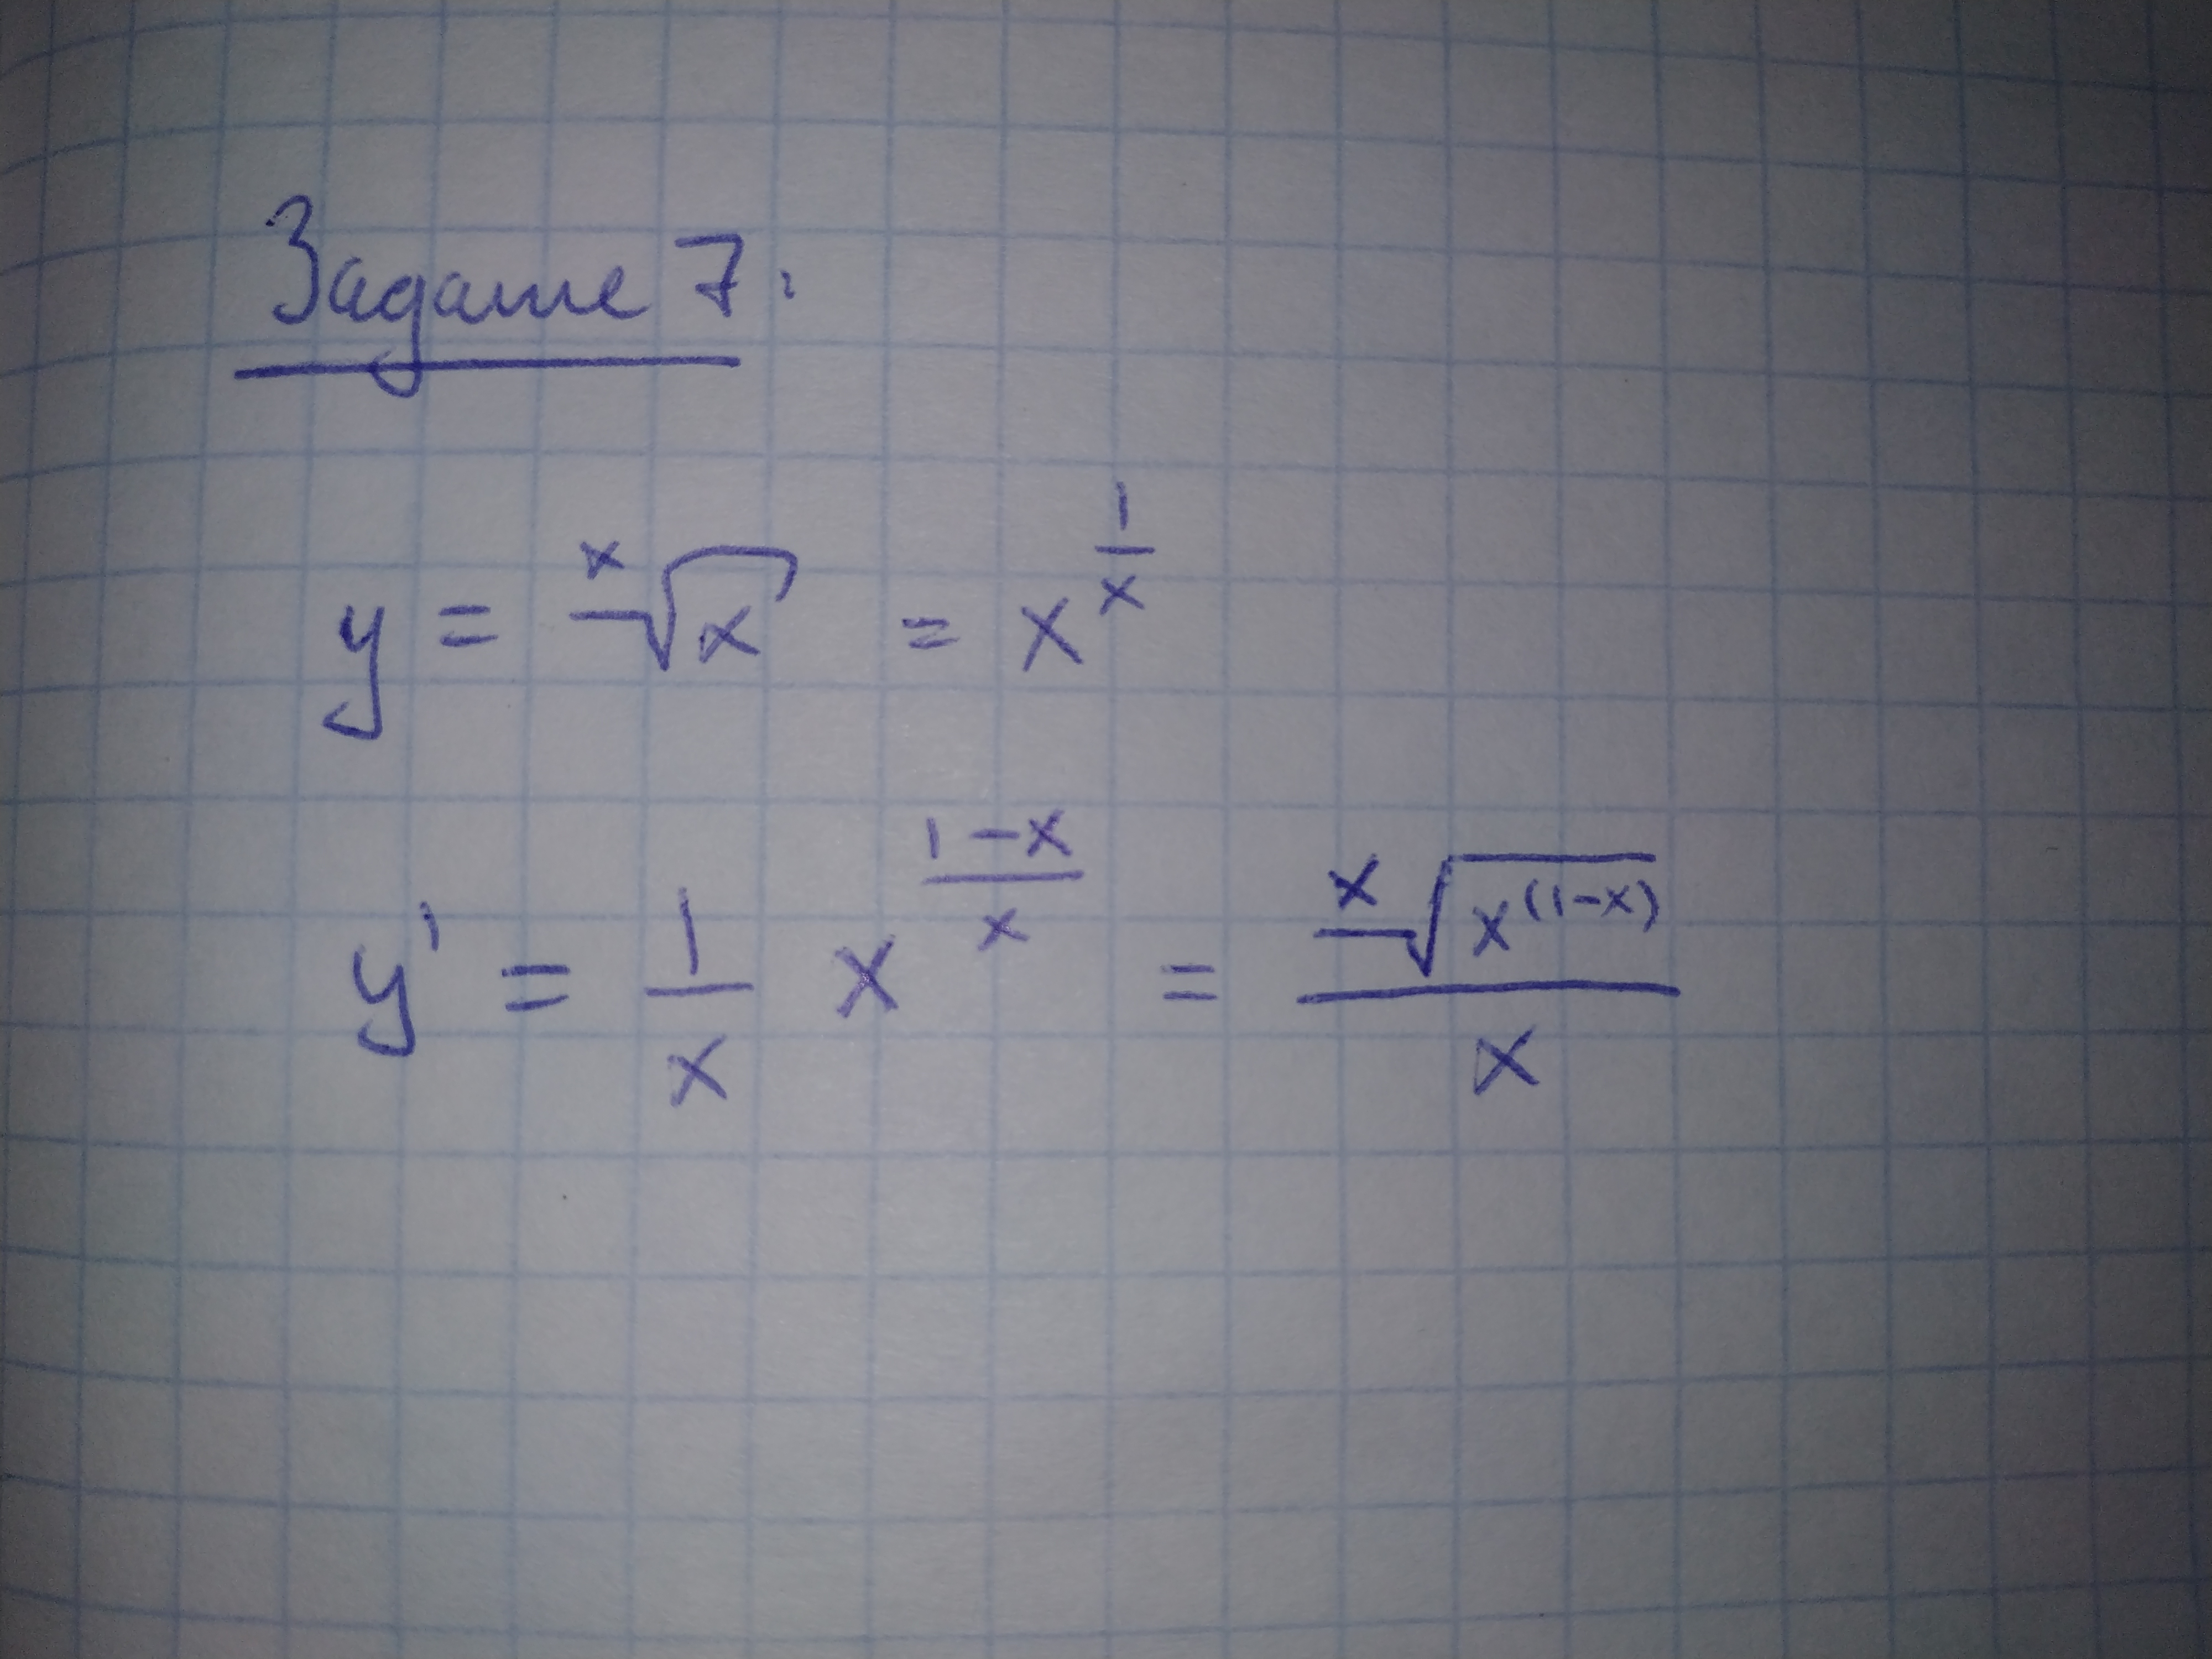 Задание 7:
y = ˣ√x = x^(1/x)
y' = 1/x x^((1-x)/x) = ˣ√(x^(1-x)) / x